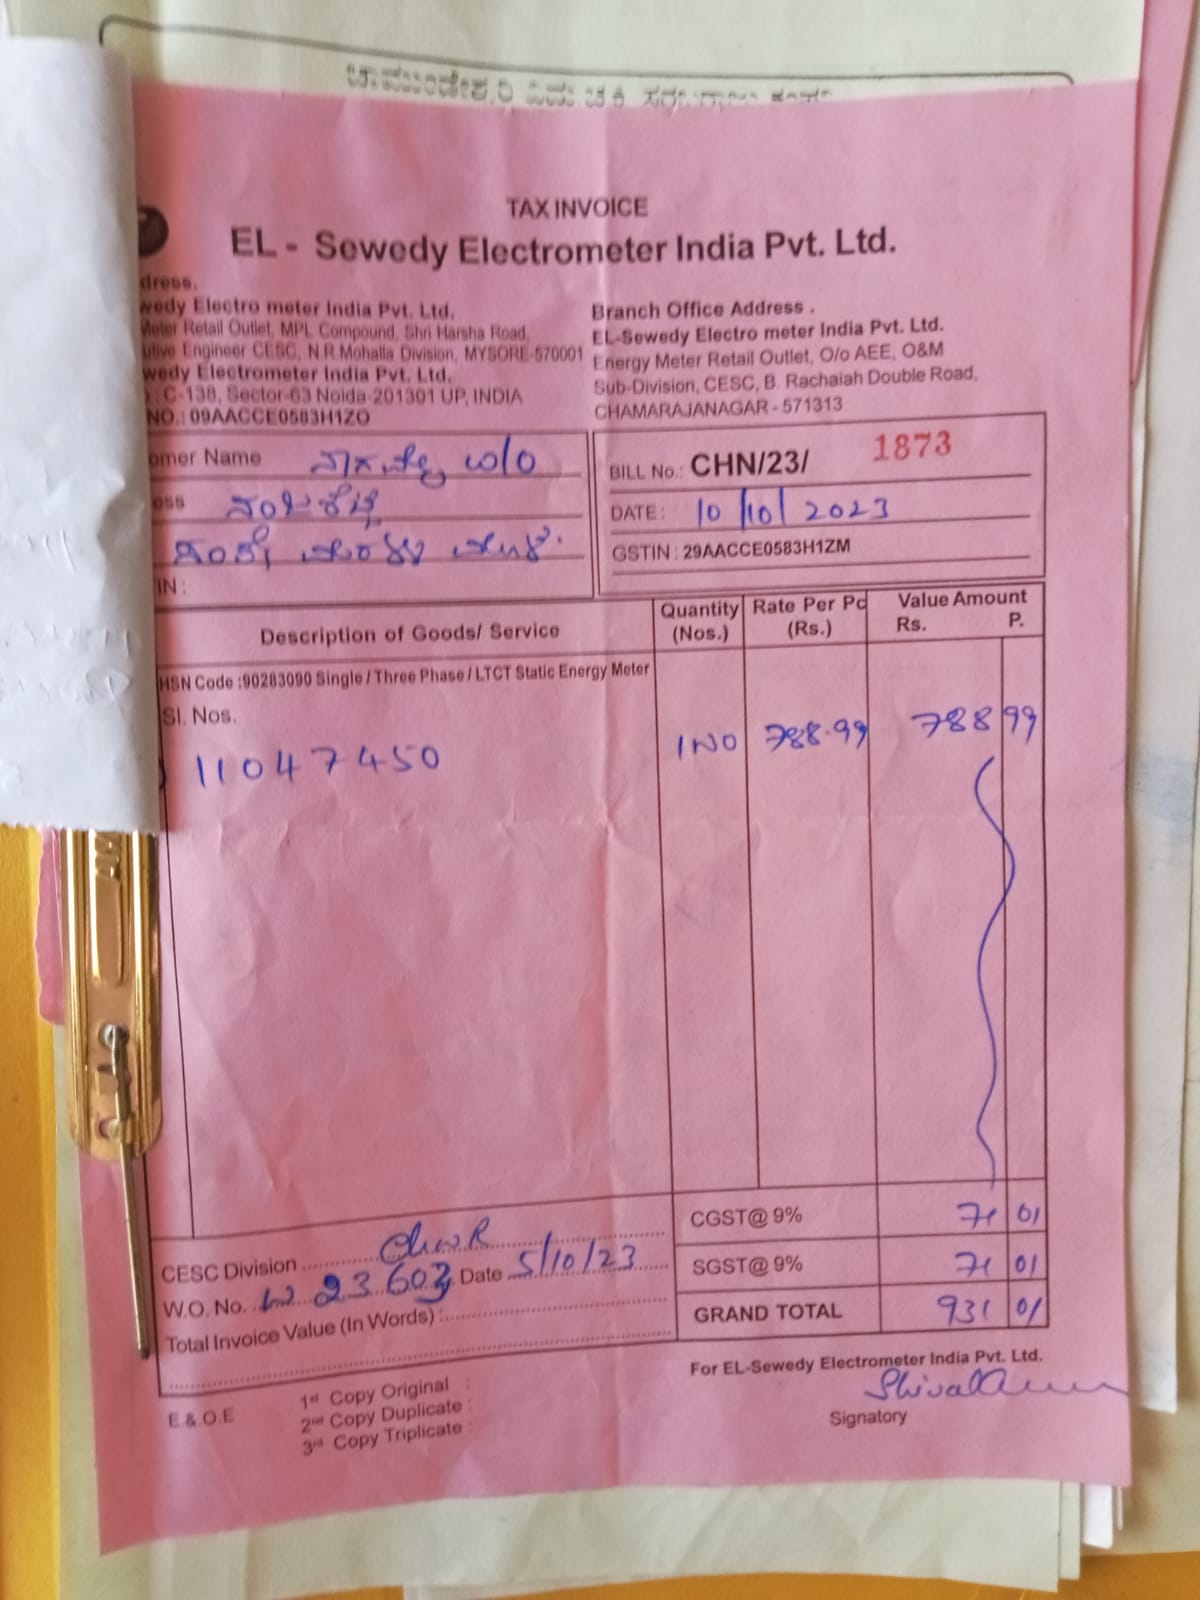 TAX INVOICE
EL - Sewedy Electrometer India Pvt. Ltd.
dress.
wedy Electro meter India Pvt. Ltd.
Meter Retail Outlet, MPL Compound, Shri Harsha Road,
utive Engineer CESC, N.R.Mohalla Division, MYSORE-570001
wedy Electrometer India Pvt. Ltd.
: C-138, Sector-63 Noida-201301 UP, INDIA
NO.: 09AACCE0583H1ZO
Branch Office Address .
EL-Sewedy Electro meter India Pvt. Ltd.
Energy Meter Retail Outlet, O/o AEE, O&M
Sub-Division, CESC, B. Rachaiah Double Road,
CHAMARAJANAGAR - 571313
omer Name
ess
IN :
BILL No.: CHN/23/ 1873
DATE: 10/10/2023
GSTIN : 29AACCE0583H1ZM
Description of Goods/ Service Quantity (Nos.) Rate Per Pc (Rs.) Value Amount Rs. P.
HSN Code :90283090 Single / Three Phase / LTCT Static Energy Meter
Sl. Nos.
11047450 1NO 788.99 788 99
CGST@ 9% 71 01
SGST@ 9% 71 01
GRAND TOTAL 931 01
CESC Division
W.O. No. Date 5/10/23
Total Invoice Value (In Words) :
For EL-Sewedy Electrometer India Pvt. Ltd.
Signatory
E.& .O.E
1st Copy Original :
2nd Copy Duplicate :
3rd Copy Triplicate :